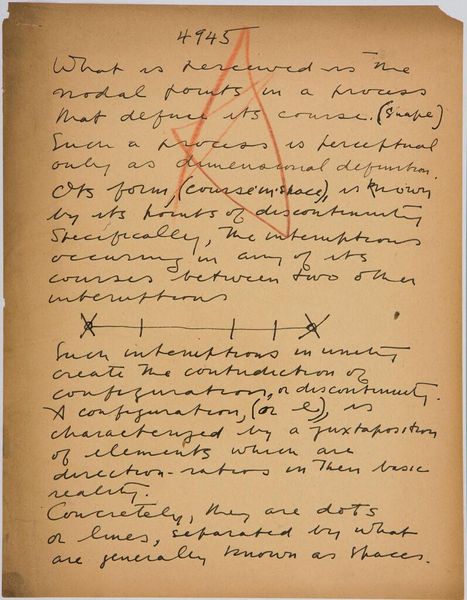 4945
What is perceived is the
nodal points in a process
that define its course. (shape)
Such a process is perceptual
only as dimensional definition.
Its form, (course-in-space), is known
by its points of discontinuity
specifically, the interruptions
occuring in any of its
courses between two other
interruptions
Such interruptions in unity
create the contradiction of
configuration, or discontinuity.
A configuration, (or), is
characterized by a juxtaposition
of elements which are
direction-ratios in their basic
reality.
Concretely, they are dots
or lines, separated by what
are generally known as spaces.